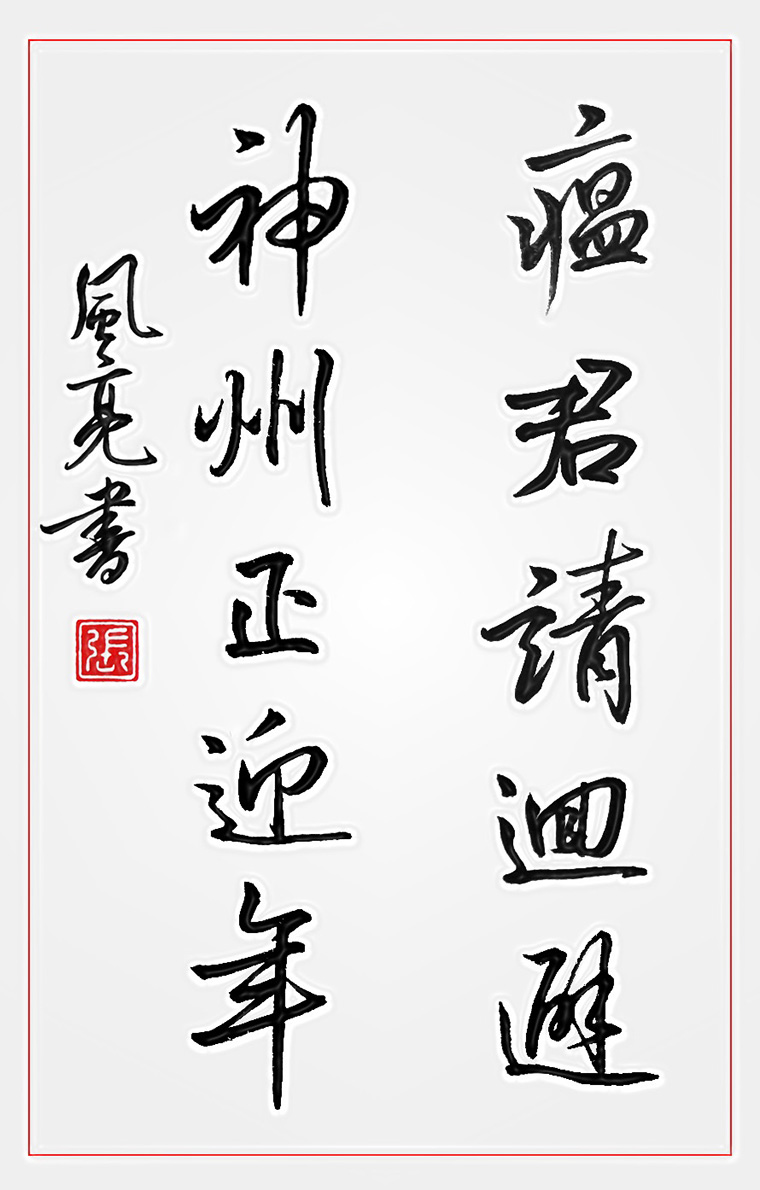 瘟君請迴避
神州正迎年
風亮書
張